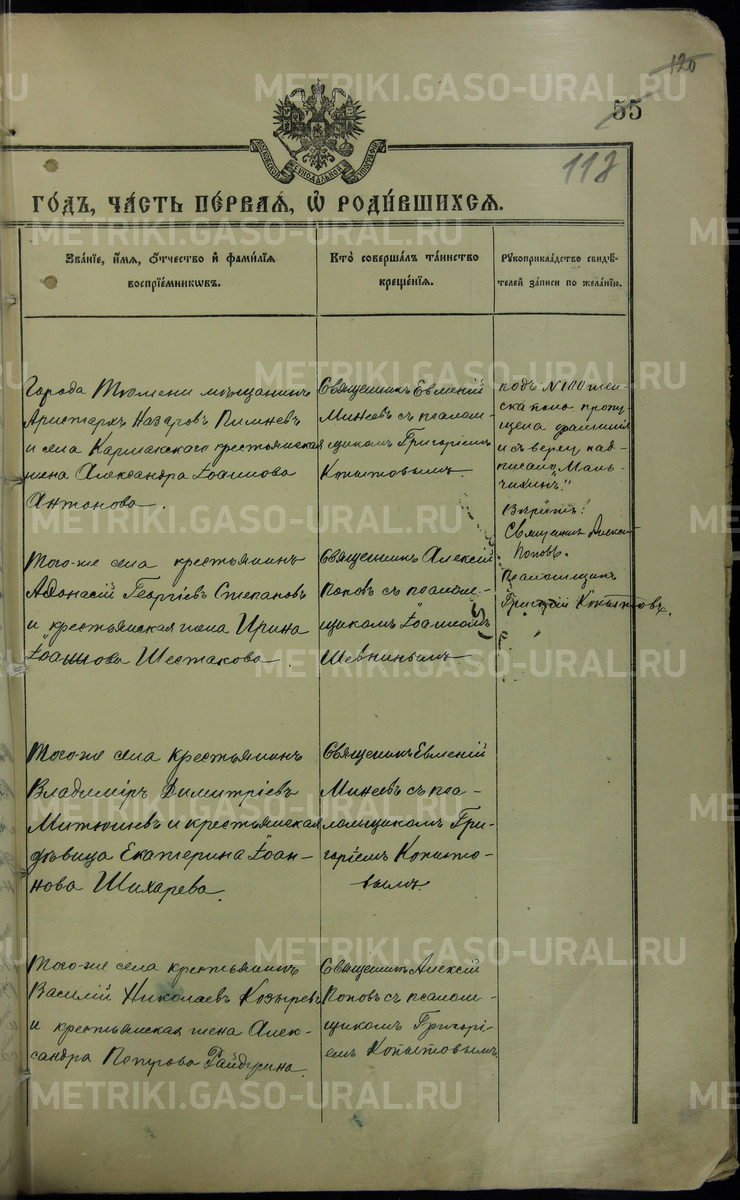 METRIKI.GASO-URAL.RU
120
55
118
МОСКОВСКОЙ СѴНОДАЛЬНОЙ ТИПОГРАФІИ
ГО́ДЪ, ЧА́СТЬ ПЕ́РВАѦ, Ѡ҆ РОДИ́ВШИХСѦ.
Зва́нїе, и҆́мѧ, ѻ҆́тчество и҆ фами́лїѧ
воспрїе́мникѡвъ.
Кто̀ соверша́лъ та́инство
креще́нїѧ.
Рꙋкоприкла́дство свидѣ́-
телей за́писи по жела́нїю.
Города Тюмени мѣщанинъ
Аристархъ Назаровъ Пимневъ
и села Кармакскаго крестьянская
жена Александра Іоаннова
Антонова.
Священникъ Евменій
Минеевъ съ псалом-
щикомъ Григоріемъ
Копытовымъ
подъ № 100
пропу-
щена
и с верху над-
писано „Маль-
чихинъ.“
Вѣрно:
Священникъ Алексій
Поповъ.
Псаломщикъ
Григорій Копытовъ.
Того-же села крестьянинъ
Аѳонасій Георгіевъ Степановъ
и крестьянская жена Ирина
Іоаннова Шестакова.
Священникъ Алексій
Поповъ съ псалом-
щикомъ Іоанномъ
Шевнинымъ
Того-же села крестьянинъ
Владиміръ Димитріевъ
Митюшевъ и крестьянская
дѣвица Екатерина Іоан-
нова Шихарева.
Священникъ Евменій
Минеевъ съ пса-
ломщикомъ Гри-
горіемъ Копыто-
вымъ.
Того-же села крестьянинъ
Василій Николаевъ Козыревъ
и крестьянская жена Алек-
сандра
Священникъ Алексій
Поповъ съ псалом-
щикомъ Григорі-
емъ Копытовымъ